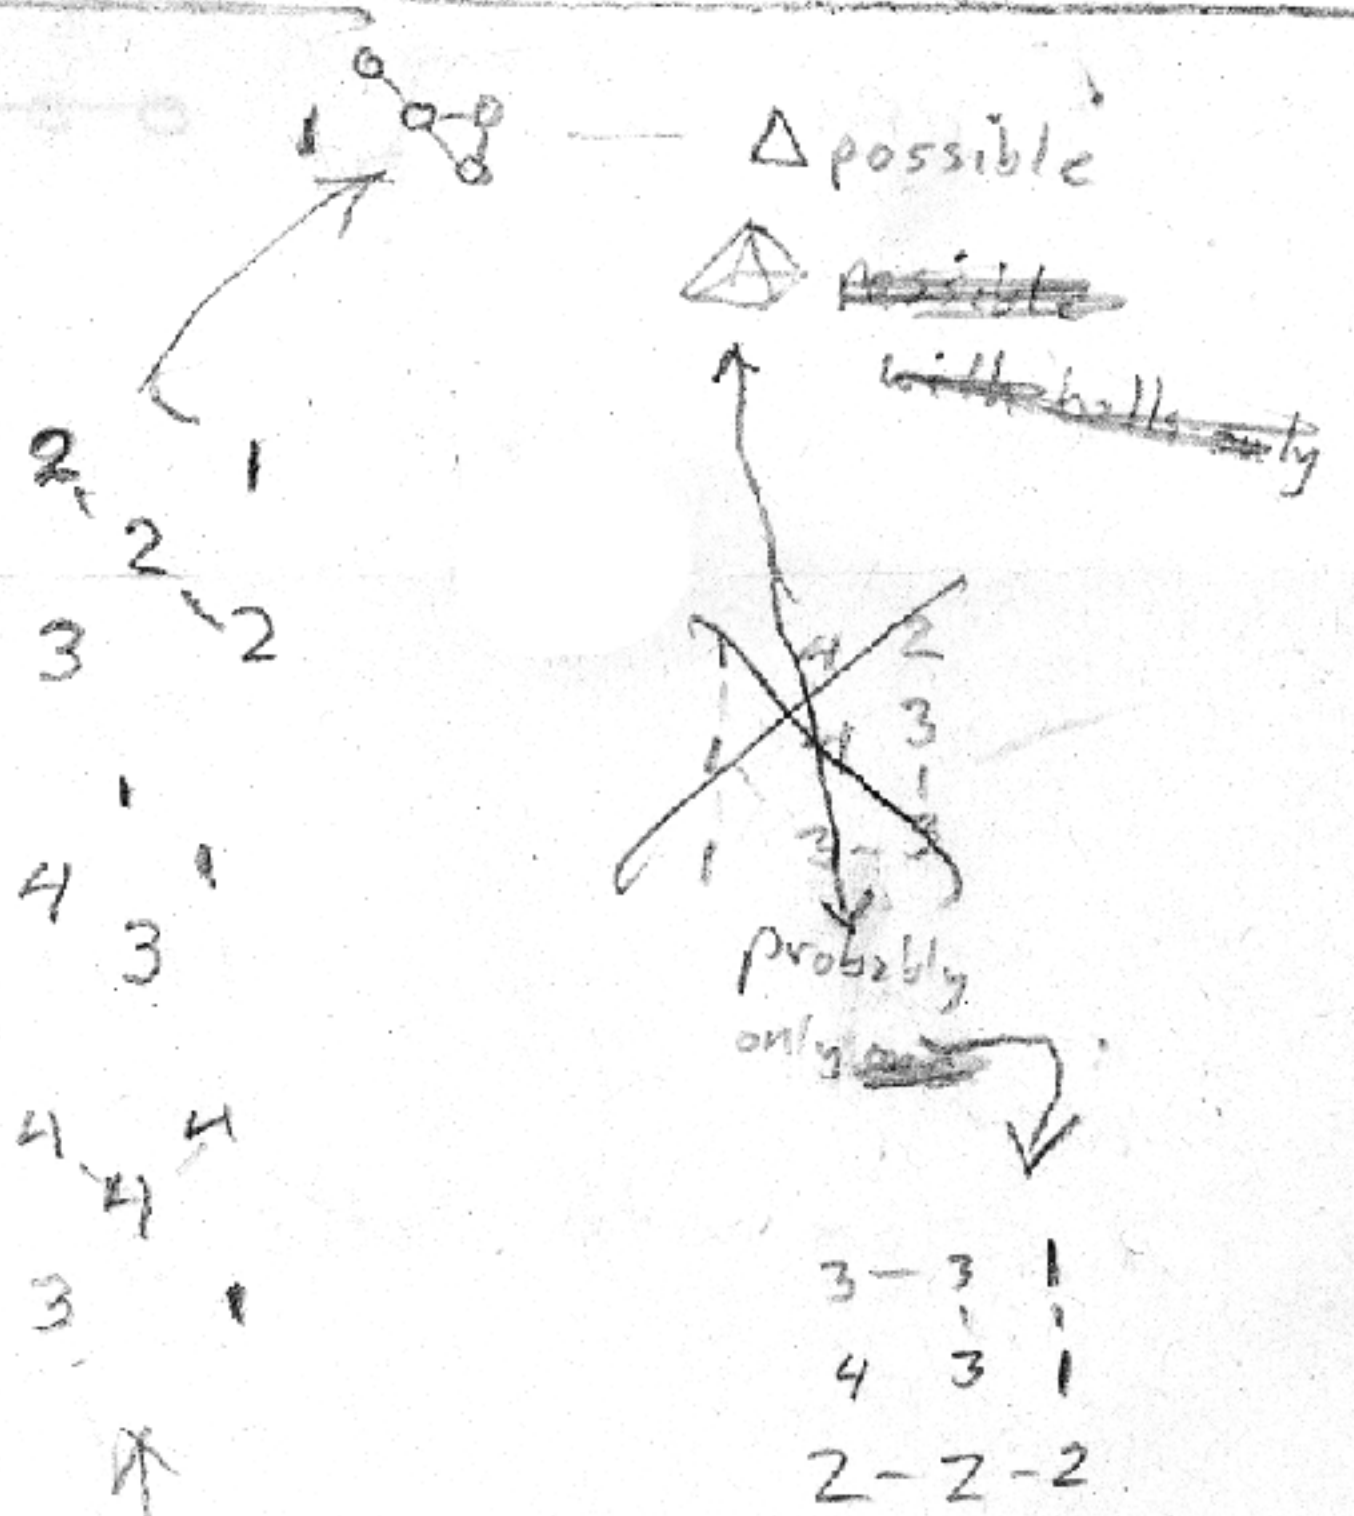 1
△ possible
possible
with balls only
2 1
2
3 2
1
4 1
3
4 4
4
3 1
1 4 2
1 4 3
1
1 3 - 3
probably
only
3 - 3 1
4 3 1
2 - 2 - 2